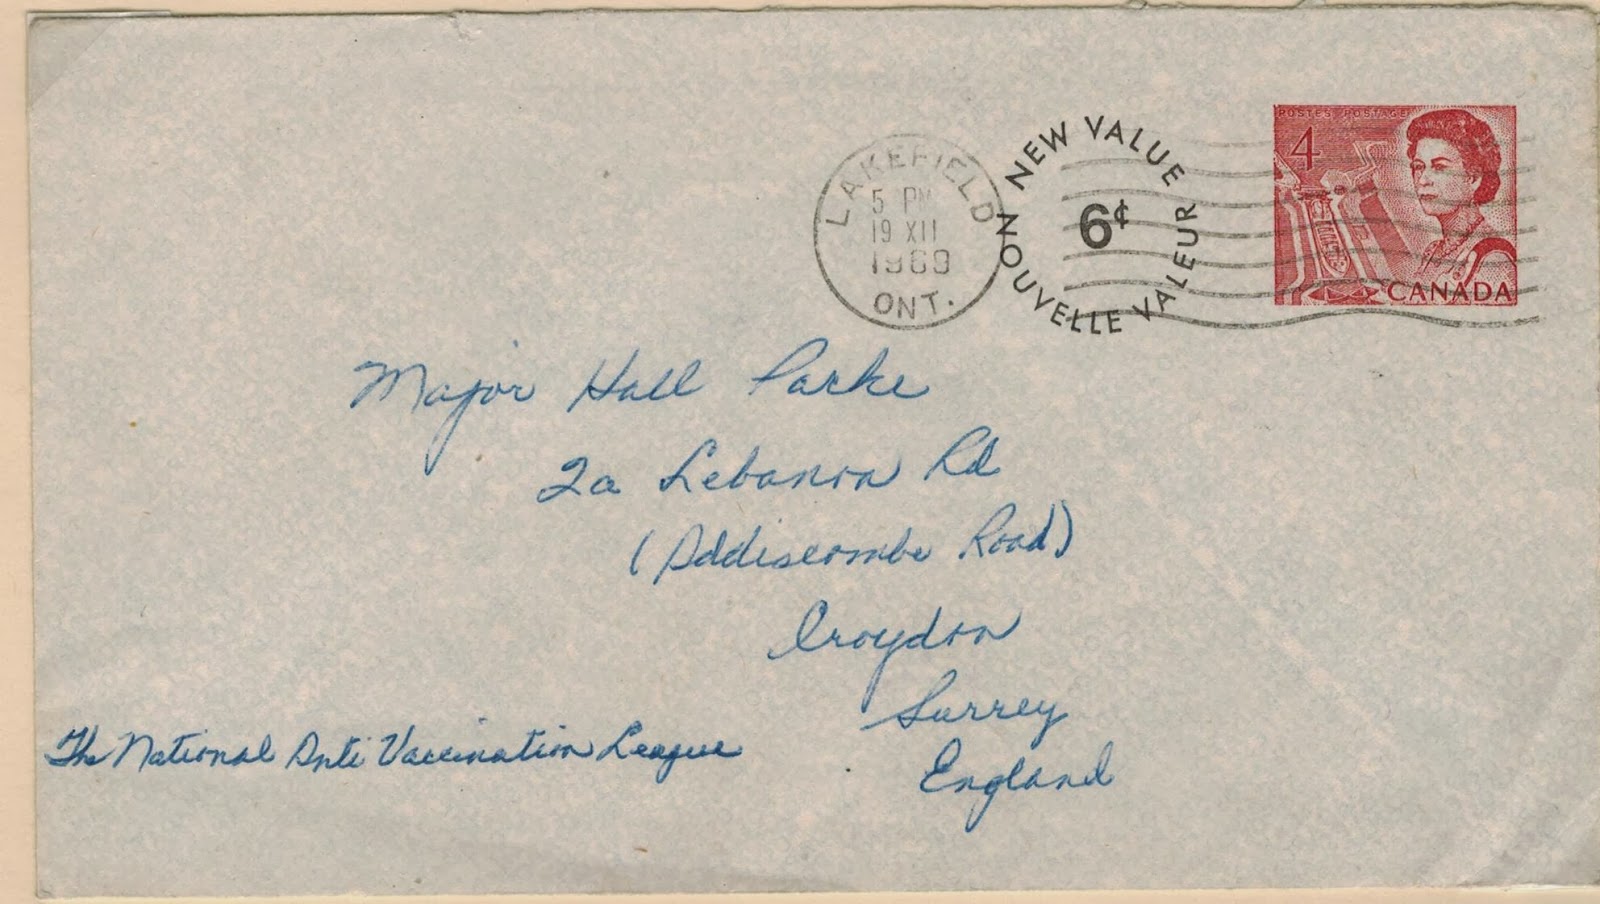 POSTES POSTAGE
4
CANADA
NEW VALUE
6¢
NOUVELLE VALEUR
LAKEFIELD
5 PM
19 XII
1969
ONT.
Major Hall Parke
2a Lebanon Rd
(Addiscombe Road)
Croydon
Surrey
England
The National Anti Vaccination League